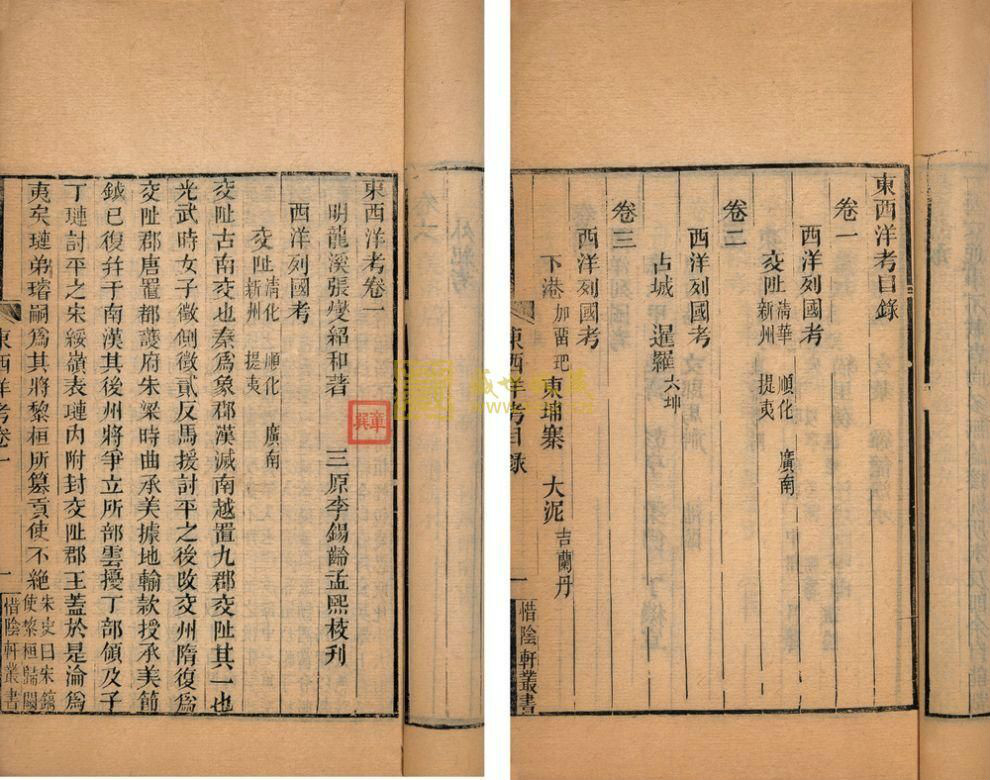 東西洋考目錄
卷一
西洋列國考
交阯 清華 順化 廣南
新州 提夷
卷二
西洋列國考
占城 暹羅 六坤
卷三
西洋列國考
下港 加留𠯢 柬埔寨 大泥 吉蘭丹
東西洋考目錄 一 惜陰軒叢書
東西洋考卷一
明龍溪張燮紹和著 三原李錫齡孟熙校刊
西洋列國考
交阯 清化 順化 廣南
新州 提夷
交阯古南交也秦為象郡漢滅南越置九郡交阯其一也
光武時女子徵側徵貳反馬援討平之後改交州隋復為
交阯郡唐置都護府朱梁時曲承美據地輸款授承美節
鉞已復并于南漢其後州將爭立所部雲擾丁部領及子
丁璉討平之宋綏嶺表璉內附封交阯郡王蓋於是淪為
夷矣璉弟璿嗣為其將黎桓所篡貢使不絕 宋史曰宋鎬
使黎桓歸闕
東西洋考卷一 一 惜陰軒叢書